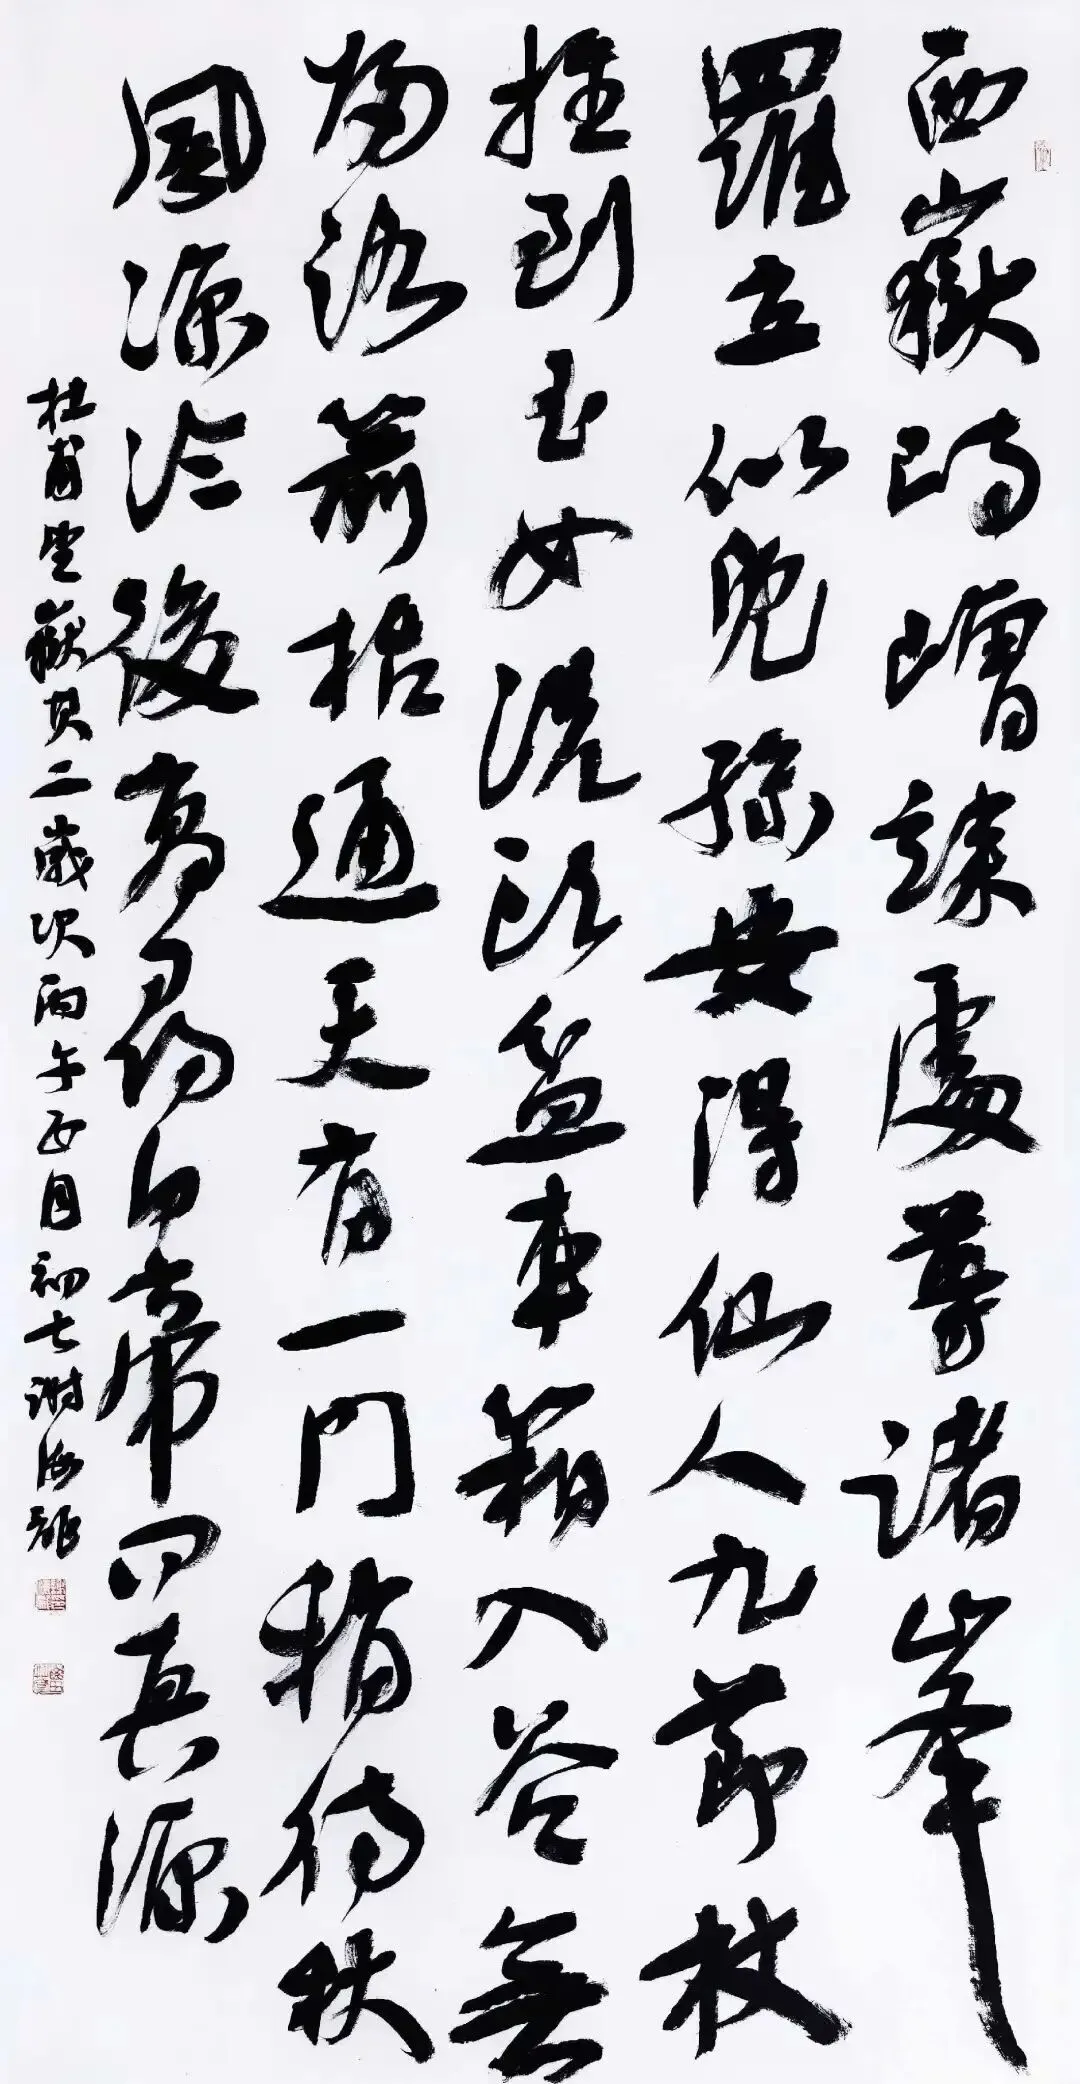 西嶽崚嶒竦處尊諸峯
羅立似兒孫安得仙人九節杖
拄到玉女洗頭盆車箱入谷無
歸路箭栝通天有一門稍待秋
風涼冷後高尋白帝問真源
杜甫望嶽其二歲次丙午正月初七謝海龍